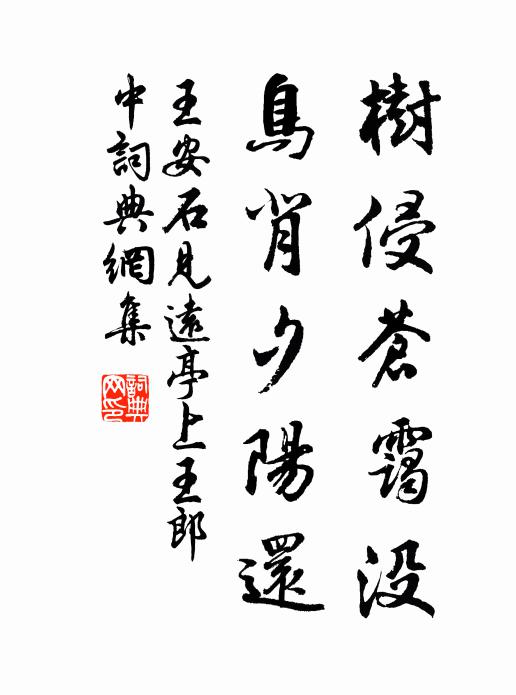 樹侵蒼靄没
鳥背夕陽還
王安石見遠亭上王郎
中詞典網集
詞典
网印